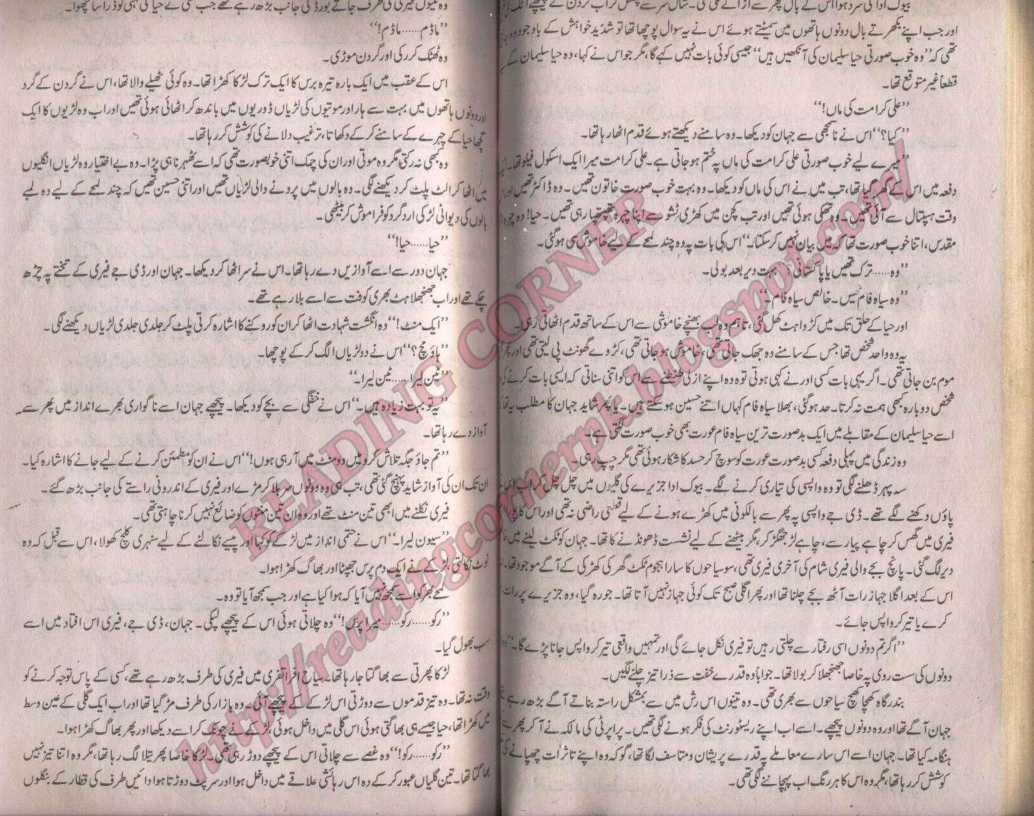 بیوک ادا کی سرد ہوا اس کے بال پھر سے اڑانے لگی تھی۔
اور جب اپنے بکھرتے بال دونوں ہاتھوں میں سمیٹتے ہوئے اس نے یہ سوال پوچھا تھا تو شدید خواہش کے باوجود وہ
تھی کہ "وہ خوب صورتی حیا سلیمان کی آنکھیں ہیں" جیسی کوئی بات نہیں کہے گا، مگر جو اس نے کہا، وہ حیا سلیمان کے
قطعاً غیر متوقع تھا۔
"علی کرامت کی ماں!"
"کیا؟" اس نے ناسمجھی سے جہان کو دیکھا۔ وہ سامنے دیکھتے ہوئے قدم اٹھا رہا تھا۔
"میرے لیے خوب صورتی علی کرامت کی ماں پہ ختم ہو جاتی ہے۔ علی کرامت میرا ایک اسکول فیلو تھا۔
دفعہ میں اس کے گھر گیا تھا، تب میں نے اس کی ماں کو دیکھا۔ وہ بہت خوب صورت خاتون تھیں۔ وہ ڈاکٹر تھیں اور
وقت ہسپتال سے آئی تھیں۔ وہ تھکی ہوئی تھیں اور تب کچن میں کھڑی نشو سے اپنا چہرہ تھپتھپا رہی تھیں۔ حیا! وہ چہرہ
مقدس، اتنا خوب صورت تھا کہ میں بیان نہیں کر سکتا۔" اس کی بات پہ وہ چند لمحے کے لیے خاموش سی ہو گئی۔
"وہ..... ترک تھیں یا پاکستانی؟" بہت دیر بعد بولی۔
"وہ سیاہ فام تھیں۔ خالص سیاہ فام۔"
اور حیا کے حلق تک میں کڑواہٹ گھل گئی، تاہم وہ لب بھینچے خاموشی سے اس کے ساتھ قدم اٹھاتی رہی۔
یہ وہ واحد شخص تھا جس کے سامنے وہ جھک جاتی تھی، خاموش ہو جاتی تھی، کڑوے گھونٹ پی لیتی تھی اور
موم بن جاتی تھی۔ اگر یہی بات کسی اور نے کہی ہوتی تو وہ اپنے ازلی طنطنے سے اس کو اتنی سناتی کہ ایسی بات کرنے کی
شخص دوبارہ بھی ہمت نہ کرتا۔ حد ہو گئی، بھلا سیاہ فام کہاں اتنے حسین ہو سکتے ہیں۔ یا پھر شاید جہان کا مطلب یہ تھا
اسے حیا سلیمان کے مقابلے میں ایک بدصورت ترین سیاہ فام عورت بھی خوب صورت لگتی ہے۔
وہ زندگی میں پہلی دفعہ کسی بدصورت عورت کو سوچ کر حسد کا شکار ہوئی تھی مگر چپ رہی۔
سہ پہر ڈھلنے لگی تو وہ واپسی کی تیاری کرنے لگے۔ بیوک ادا جزیرے کی گلیوں میں چل چل کر اب
پاؤں دکھنے لگے تھے۔ ڈی جے واپسی پہ پھر سے بالکونی میں کھڑے ہونے کے لیے قطعی راضی نہ تھی اور اس کا
فیری میں گھس کر چاہے پیار سے، چاہے لڑ جھگڑ کر، مگر بیٹھنے کے لیے نشست ڈھونڈنے کا تھا۔ جہان کو ٹکٹ لینے میں
دیر لگ گئی۔ پانچ بجے والی فیری شام کی آخری فیری تھی، سو سیاحوں کا سارا ہجوم ٹکٹ گھر کی کھڑکی کے آگے موجود تھا۔
اس کے بعد اگلا جہاز رات آٹھ بجے چلنا تھا اور پھر اگلی صبح تک کوئی جہاز نہیں آنا تھا۔ جو رہ گیا، وہ جزیرے پر رات
کرے یا تیر کر واپس جائے۔
"اگر تم دونوں اسی رفتار سے چلتی رہیں تو فیری نکل جائے گی اور تمہیں واقعی تیر کر واپس جانا پڑے گا۔"
دونوں کی سست روی پہ خاصا جھنجھلا کر بولا تھا۔ جواباً وہ قدرے خفت سے ذرا تیز چلنے لگیں۔
بندرگاہ کھچا کھچ سیاحوں سے بھری تھی۔ وہ تینوں اس رش میں سے بمشکل راستہ بناتے آگے بڑھ رہے
جہان آگے تھا اور وہ دونوں پیچھے۔ اسے اب اپنے ریسٹورنٹ کی فکر ہونے لگی تھی۔ پراپرٹی کی مالکہ نے آ کر پھر سے
ہنگامہ کیا تھا۔ جہان اسے اس سارے معاملے پہ قدرے پریشان و متاسف لگا تھا، گو کہ وہ اپنے تاثرات چھپانے کی
کوشش کر رہا تھا، مگر وہ اس کا ہر رنگ اب پہچاننے لگی تھی۔
وہ تینوں فیری کی طرف جاتے بورڈ کی جانب بڑھ رہے تھے جب کسی نے حیا کی
"ماڈم..... ماڈم!"
وہ ٹھٹک کر رکی اور گردن موڑی۔
اس کے عقب میں ایک بارہ تیرہ برس کا ایک ترک لڑکا کھڑا تھا۔ وہ کوئی ٹھیلے والا تھا، اس نے گردن کے گرد
اور دونوں ہاتھوں میں بہت سے ہار اور موتیوں کی لڑیاں ڈوریوں میں باندھ کر اٹھائی ہوئی تھیں اور اب وہ لڑیوں کا ایک
گچھا حیا کے چہرے کے سامنے کر کے دکھاتا، ترغیب دلانے کی کوشش کر رہا تھا۔
وہ کبھی نہ رکتی مگر وہ موتی اور ان کی چمک اتنی خوبصورت تھی کہ اسے ٹھہرنا ہی پڑا۔ وہ بے اختیار وہ لڑیاں انگلیوں
میں اٹھا کر الٹ پلٹ کر دیکھنے لگی۔ وہ بالوں میں پرونے والی لڑیاں تھیں اور اتنی حسین تھیں کہ چند لمحے کے لیے وہ لمبے
بالوں کی دیوانی لڑکی اردگرد کو فراموش کر بیٹھی۔
"حیا..... حیا!"
جہان دور سے اسے آوازیں دے رہا تھا۔ اس نے سر اٹھا کر دیکھا۔ جہان اور ڈی جے فیری کے تختے پہ چڑھ
چکے تھے اور اب جھنجھلاہٹ بھری کوفت سے اسے بلا رہے تھے۔
"ایک منٹ!" وہ انگشت شہادت اٹھا کر ان کو روکنے کا اشارہ کرتی پلٹ کر جلدی جلدی لڑیاں دیکھنے لگی۔
"ہاؤ مچ؟" اس نے دو لڑیاں الگ کر کے پوچھا۔
"ٹین لیرا..... ٹین لیرا۔"
"یہ تو بہت زیادہ ہیں۔" اس نے خفگی سے بچے کو دیکھا۔ پیچھے جہان اسے ناگواری بھرے انداز میں پھر سے
آواز دے رہا تھا۔
"تم جاؤ جگہ تلاش کرو میں دو منٹ میں آ رہی ہوں!" اس نے ان کو مطمئن کرنے کے لیے جانے کا اشارہ کیا۔
ان تک ان کی آواز شاید پہنچ گئی تھی، تب ہی وہ دونوں سر ہلا کر مڑے اور فیری کے اندرونی راستے کی جانب بڑھ گئے۔
فیری نکلنے میں ابھی تین منٹ تھے اور وہ ان تین منٹوں کو ضائع نہیں کرنا چاہتی تھی۔
"سیون لیرا۔" اس نے حتمی انداز میں لڑکے کو کہا اور پیسے نکالنے کے لیے سنہری کلچ کھولا، اس سے قبل کہ وہ
نوٹ نکالتی، لڑکے نے ایک دم پرس جھپٹا اور بھاگ کھڑا ہوا۔
لمحے بھر کو اسے سمجھ میں نہیں آیا کہ ہوا کیا ہے اور جب سمجھ آیا تو وہ۔
"رکو..... رکو..... میرا پرس!" وہ چلاتی ہوئی اس کے پیچھے لپکی۔ جہان، ڈی جے، فیری اس افتاد میں اسے
سب بھول گیا۔
لڑکا پھرتی سے بھاگتا جا رہا تھا۔ سیاح افراتفری میں فیری کی طرف بڑھ رہے تھے، کسی کے پاس توجہ کرنے کو
وقت نہ تھا۔ وہ تیز قدموں سے دوڑتی اس لڑکے کے پیچھے آئی۔ وہ بازار کی طرف مڑ گیا تھا اور اب ایک گلی کے عین وسط
میں کھڑا تھا، حیا جیسے ہی بھاگتی ہوئی اس گلی میں داخل ہوئی لڑکے نے چونک کر اسے دیکھا اور پھر بھاگ کھڑا ہوا۔
"رکو..... رکو!" وہ غصے سے چلاتی اس کے پیچھے دوڑ رہی تھی۔ لڑکا خاصا پھرتیلا لگ رہا تھا، مگر وہ اتنا تیز نہیں
بھاگتا تھا۔ تین گلیاں عبور کر کے وہ اس رہائشی علاقے میں داخل ہوا اور سرپٹ دوڑتا ہوا دائیں طرف کی قطار کے بنگلوں
READING CORNER
http://readingcornerpk.blogspot.com/